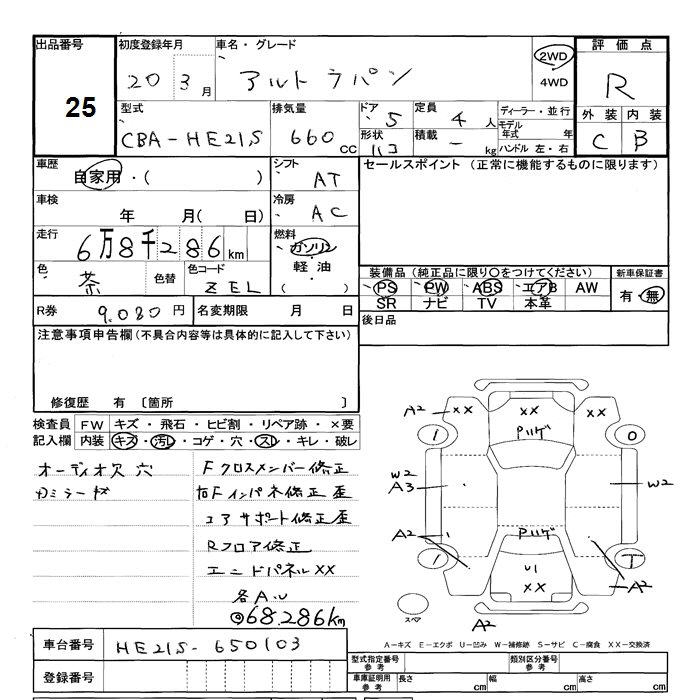 出品番号 初度登録年月 車名・グレード 評価点
25 20 3月 アルト ラパン 2WD 4WD R
型式 排気量 ドア 定員 ディーラー・並行 外装 内装
CBA-HE21S 660 CC 5 4人 モデル年式 年 C B
形状 ハコ 積載 - kg ハンドル 左・右
車歴 自家用・( ) シフト AT セールスポイント (正常に機能するものに限ります)
車検 年 月( 日) 冷房 AC
走行 6万8千286km 燃料 ガソリン 軽油 ( )
色 茶 色替 色コード ZEL
装備品 (純正品に限り○をつけてください) 新車保証書
PS PW ABS エアB AW 有・無
SR ナビ TV 本革
R券 9.080 円 名変期限 月 日 後日品
注意事項申告欄 (不具合内容等は具体的に記入して下さい)
修復歴 有 〔箇所 〕
検査員 FW キズ・飛石・ヒビ割・リペア跡・×要
記入欄 内装 キズ・汚レ・コゲ・穴・スレ・キレ・破レ
オーディオ欠 穴
Fクロスメンバー修正
右Fインパネ修正歪
コアサポート修正歪
Rフロア修正
エンドパネル××
各A.U
◎68.286km
A2 ×× ×× ××
Pハゲ
W2
A3 W2
A2 Pハゲ
××
T
A2
スペア A2
A-キズ E-エクボ U-凹み W-補修跡 S-サビ C-腐食 XX-交換済
車台番号 HE21S-650103
登録番号
型式指定番号 参考 類別区分番号 参考
車庫証明用 参考 長さ cm 幅 cm 高さ cm